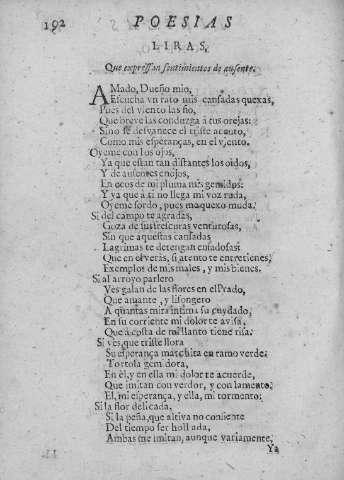 192 POESIAS
LIRAS,
Que expressan sentimientos de ausente.
AMado, Dueño mio,
Escucha vn rato mis cansadas quexas,
Pues del viento las fio,
Que breve las conduzga à tus orejas:
Sino se desvanece el triste acento,
Como mis esperanças, en el viento.
Oyeme con los ojos,
Ya que estàn tan distantes los oìdos,
Y de ausentes enojos,
En ecos de mi pluma mis gemidos:
Y ya que à tì no llega mi voz ruda,
Oyeme sordo, pues me quexo muda.
Si del campo te agradas,
Goza de sus frescuras venturosas,
Sin que aquestas cansadas
Lagrimas te detengan enfadosas:
Que en èl veràs, si atento te entretienes,
Exemplos de mis males, y mis bienes.
Si al arroyo parlero
Ves galan de las flores en el Prado,
Que amante, y lisongero
A quantas mira intima su cuydado,
En su corriente mi dolor te avisa,
Que à costa de mi llanto tiene risa.
Si ves, que triste llora
Su esperança marchita en ramo verde,
Tortola gemidora,
En èl, y en ella mi dolor te acuerde,
Que imitan con verdor, y con lamento,
El, mi esperança, y ella, mi tormento.
Si la flor delicada,
Si la peña, que altiva no consiente
Del tiempo ser hollada,
Ambas me imitan, aunque variamente,
Ya